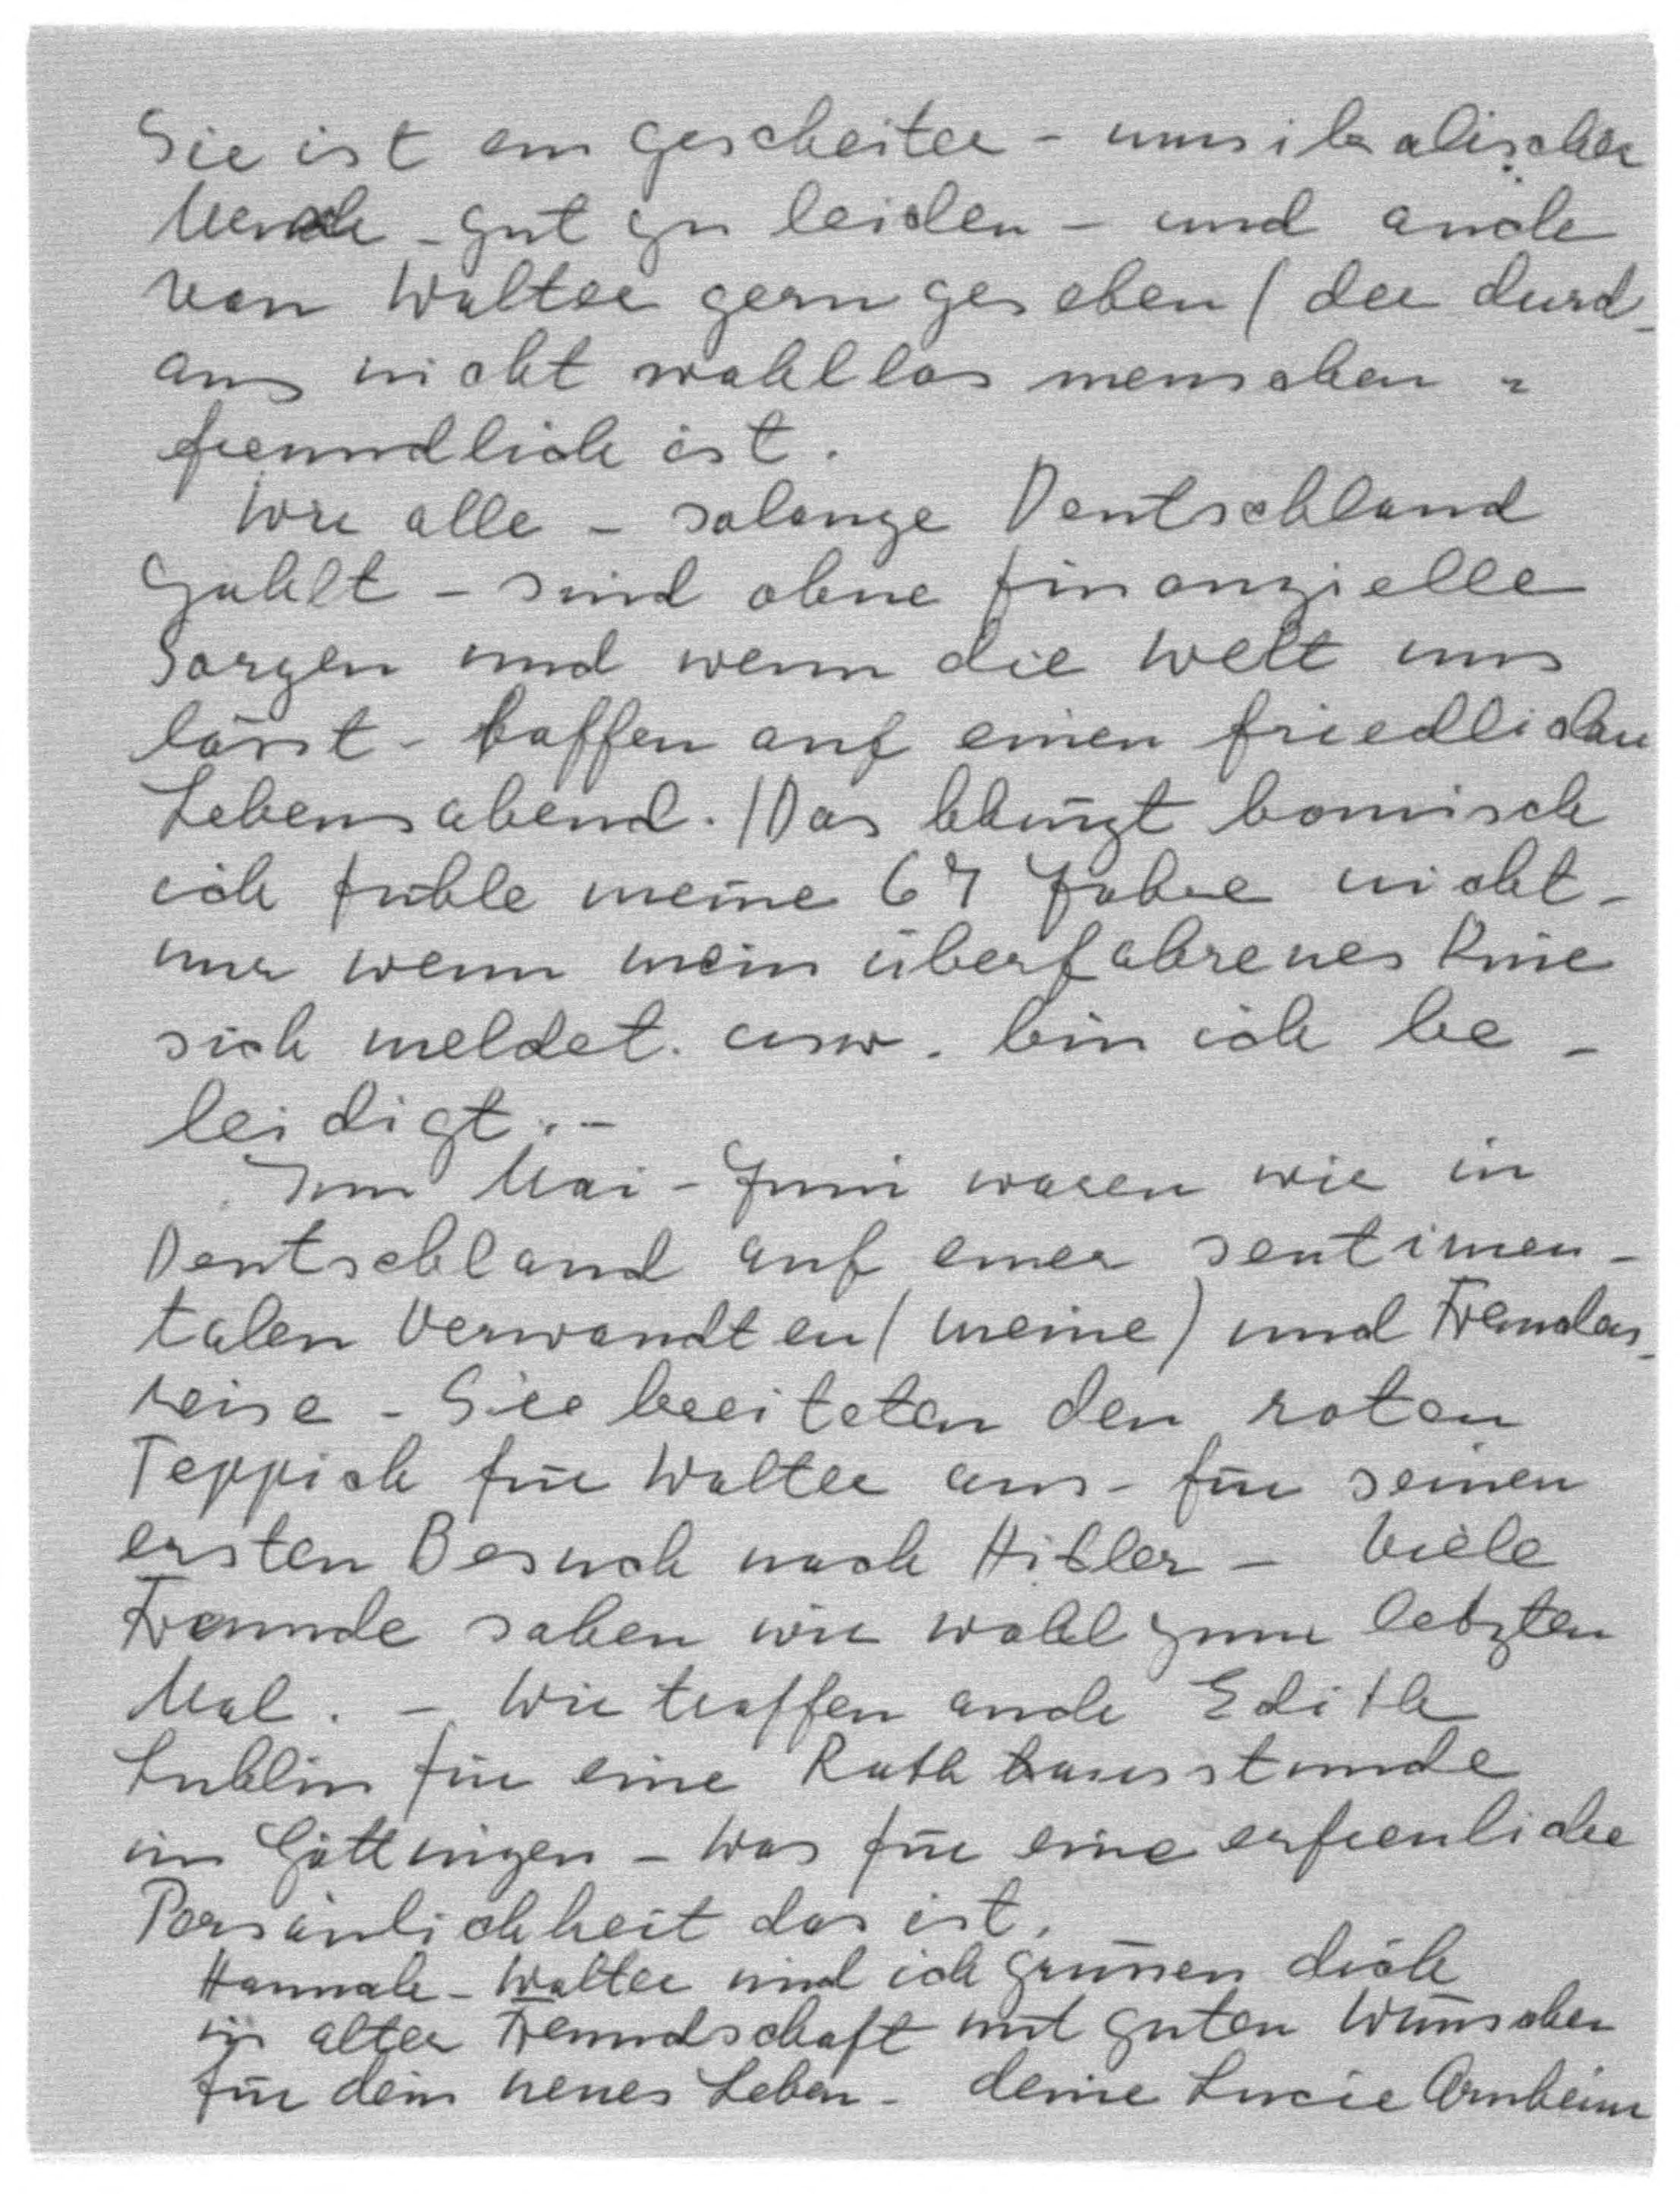 Sie ist ein gescheiter - musikalischer
Mensch - gut zu leiden - und auch
von Walter gern gesehen (der durch-
aus nicht wahllos menschen -
freundlich ist.
Wir alle - solange Deutschland
zahlt - sind ohne finanzielle
Sorgen und wenn die Welt uns
lässt - hoffen auf einen friedlichen
Lebensabend. (Das klingt komisch
ich fühle meine 67 Jahre nicht -
nur wenn mein überfahrenes Knie
sich meldet. usw. bin ich be -
leidigt. -
Im Mai - Juni waren wir in
Deutschland auf einer sentimen -
talen Verwandten (meine) und Freundes-
reise - Sie breiteten den roten
Teppich für Walter aus - für seinen
ersten Besuch nach Hitler - Viele
Freunde sahen wir wohl zum letzten
Mal. - Wir traffen auch Edith
Lublin für eine Rathausstunde
in Göttingen - was für eine erfreuliche
Persönlichkeit das ist.
Hannah - Walter und ich grüssen dich
in alter Freundschaft mit guten Wünschen
für dein neues Leben - deine Lucie Arnheim